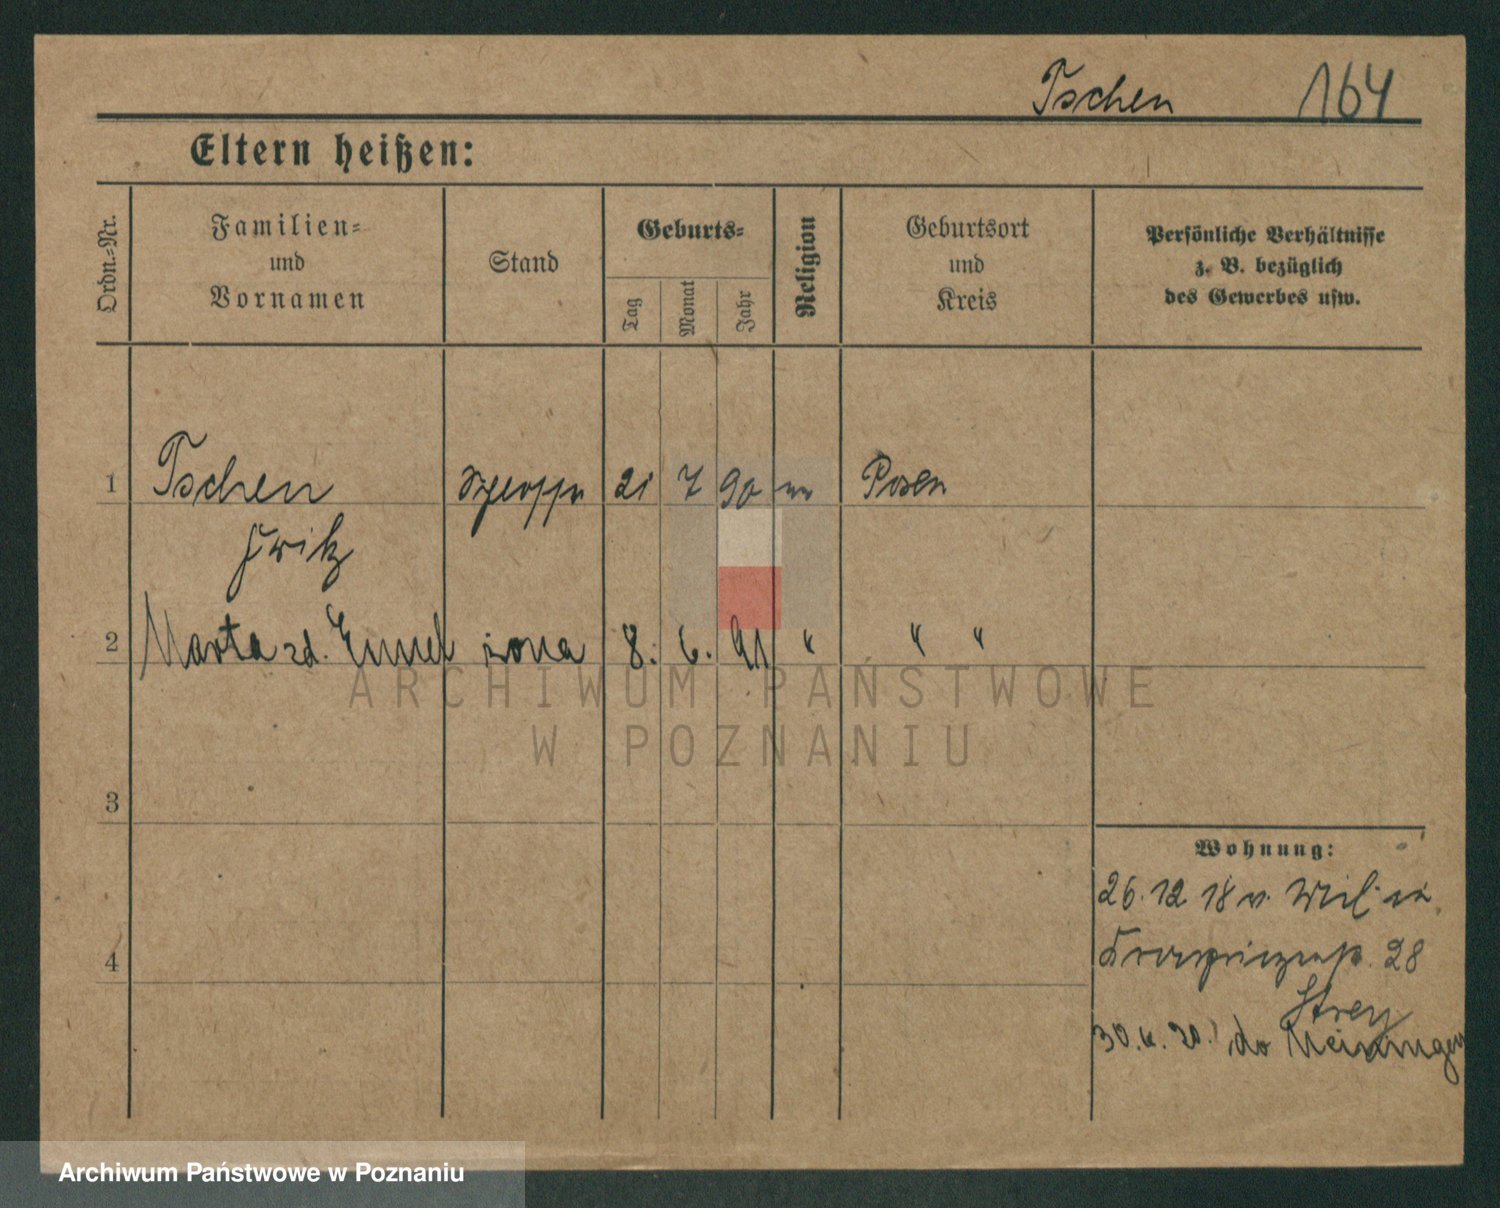 Tschen 164
Eltern heißen:
Ordn.-Nr.
Familien-
und
Vornamen
Stand
Geburts-
Tag
Monat
Jahr
Religion
Geburtsort
und
Kreis
Persönliche Verhältnisse
z. B. bezüglich
des Gewerbes usw.
1 Tschen 21 7 90 Posen
Fritz
2 Marta zd. żona 8. 6. 91 " " "
3
Wohnung:
26. 12 18 v.
4
28
Strey
30. 6. 20. do Meiningen
ARCHIWUM PAŃSTWOWE
W POZNANIU
Archiwum Państwowe w Poznaniu